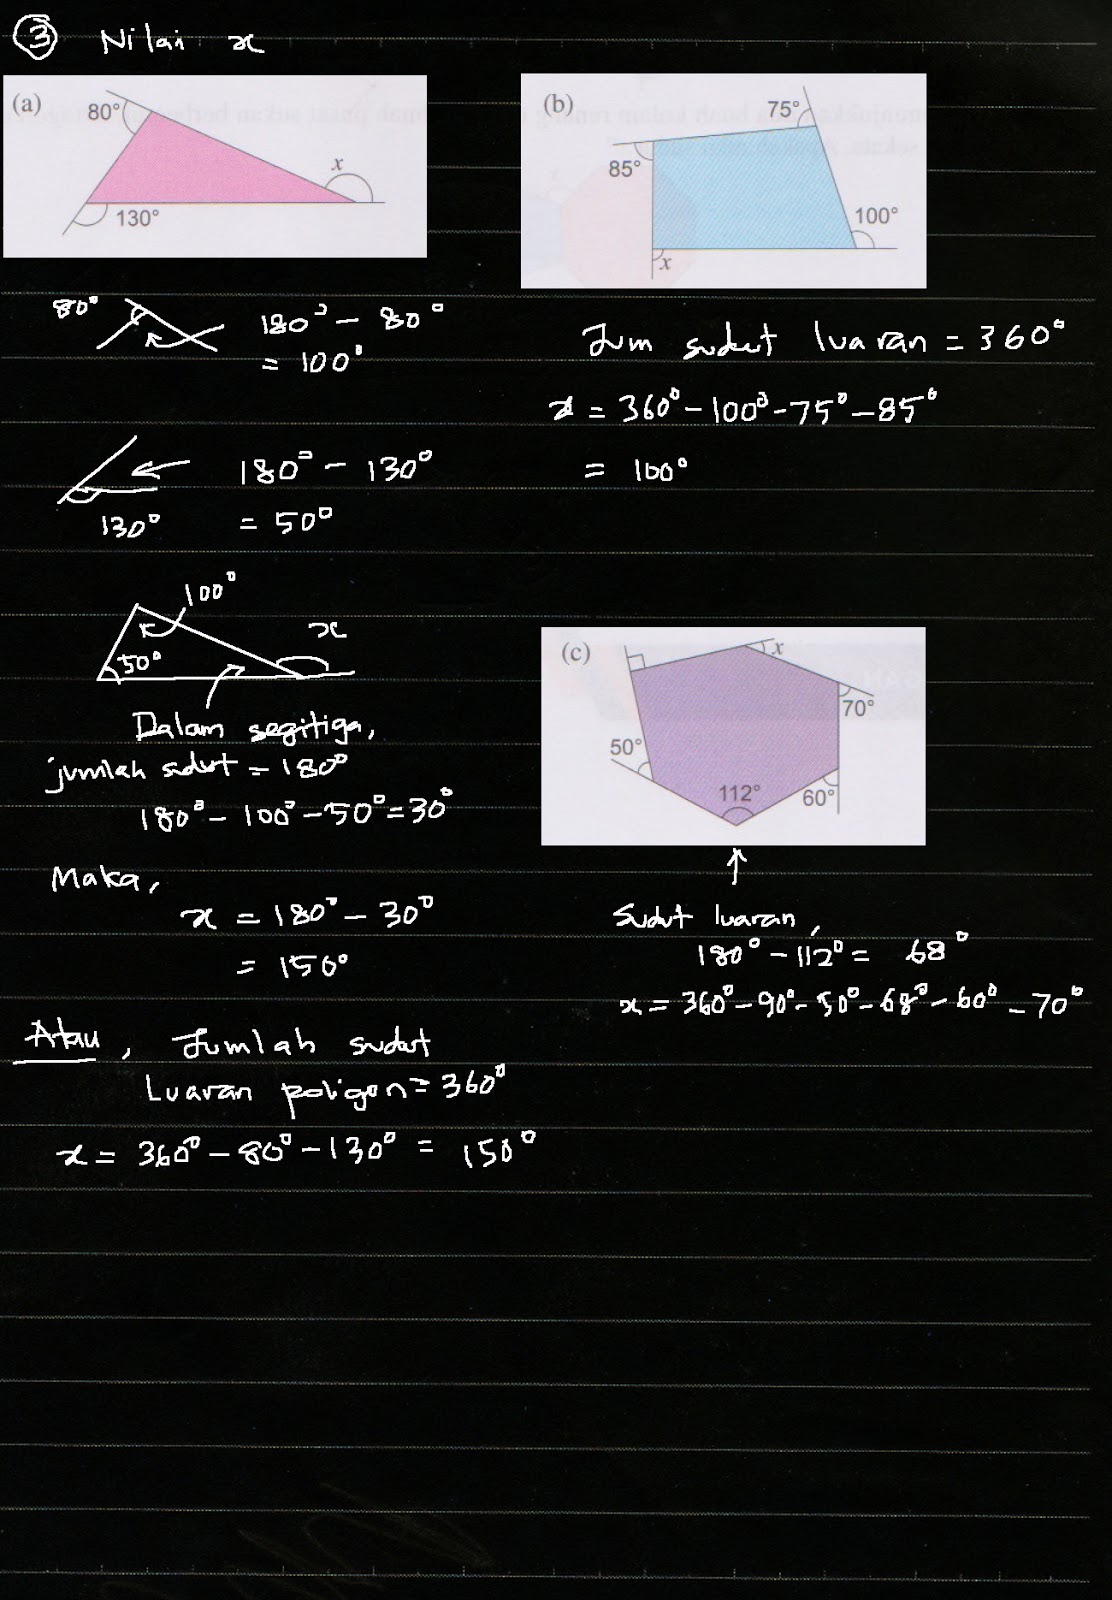 3 Nilai x
(a)
80°
x
130°
80°
180° - 80°
= 100°
180° - 130°
130°
= 50°
100°
x
50°
Dalam segitiga,
jumlah sudut = 180°
180° - 100° - 50° = 30°
Maka,
x = 180° - 30°
= 150°
Atau, Jumlah sudut
Luaran poligon = 360°
x = 360° - 80° - 130° = 150°
(b)
75°
85°
100°
x
Jum sudut luaran = 360°
x = 360° - 100° - 75° - 85°
= 100°
(c)
x
70°
50°
112°
60°
Sudut luaran,
180° - 112° = 68°
x = 360° - 90° - 50° - 68° - 60° - 70°